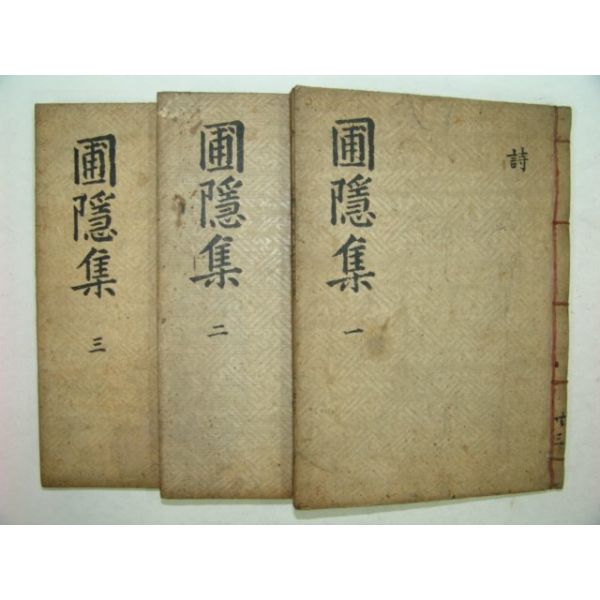 圃隱集 一
詩
共三
圃隱集 二
圃隱集 三